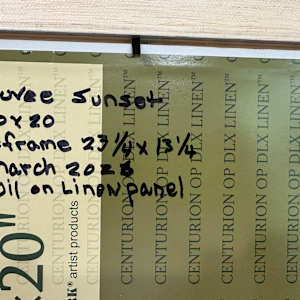 uvee Sunset
0x20
frame 23 1/4 x 13 1/4
March 202
Oil on Linen panel
x20"
RK® artist products
CENTURION OP DLX LINEN™
CENTURION OP DLX LINEN™
CENTURION OP DLX LINEN™
CENTURION OP DLX LINEN™
CENTURION OP DLX LINEN™
CENTURION OP DLX LINEN™